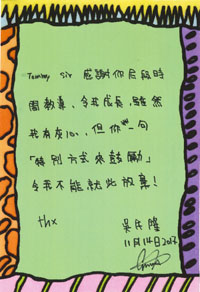 Tommy Sir 感謝你長段時
間教導，令我成長，雖然
我有灰心，但你一句
「特別方式來鼓勵」
令我不能就此放棄！
thx
吳民隆
11月14日